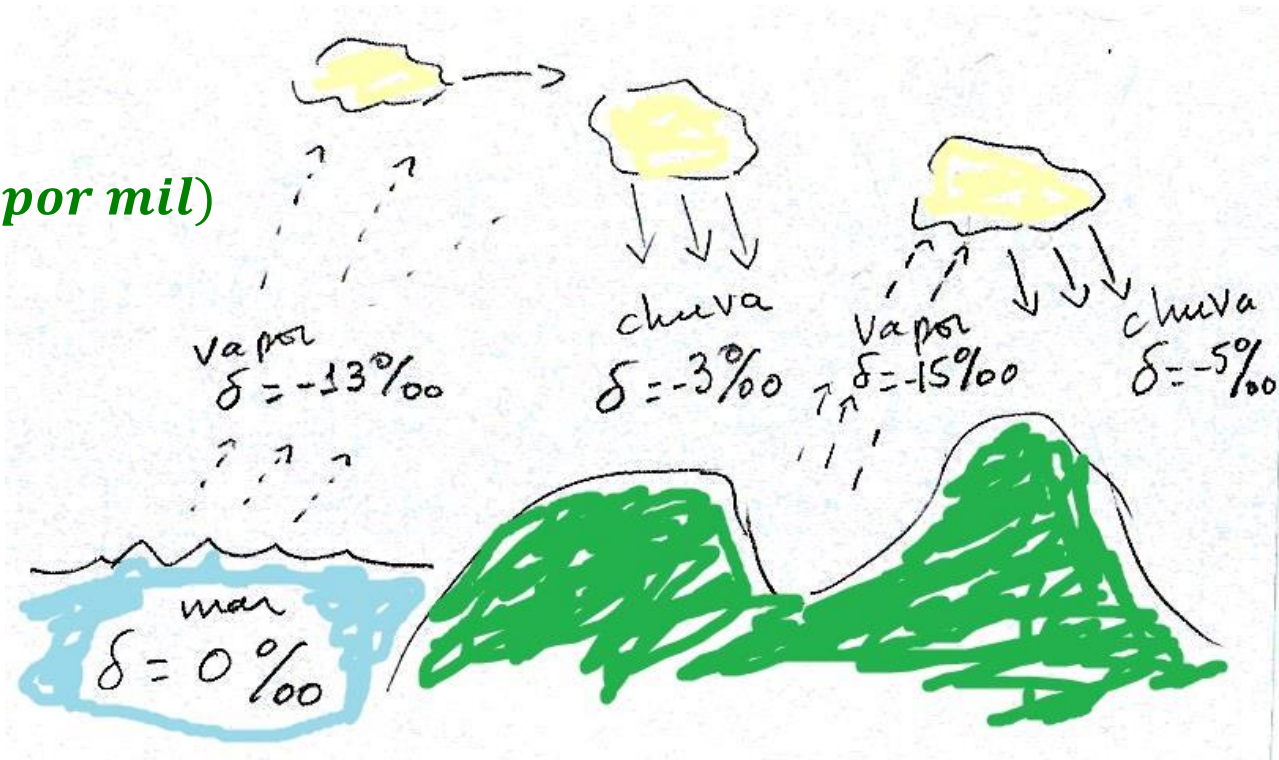 por mil)
vapor
δ = -13‰
chuva
δ = -3‰
vapor
δ = -15‰
chuva
δ = -5‰
mar
δ = 0‰